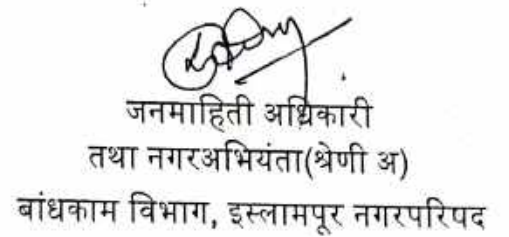 जनमाहिती अधिकारी
तथा नगरअभियंता(श्रेणी अ)
बांधकाम विभाग, इस्लामपूर नगरपरिपद